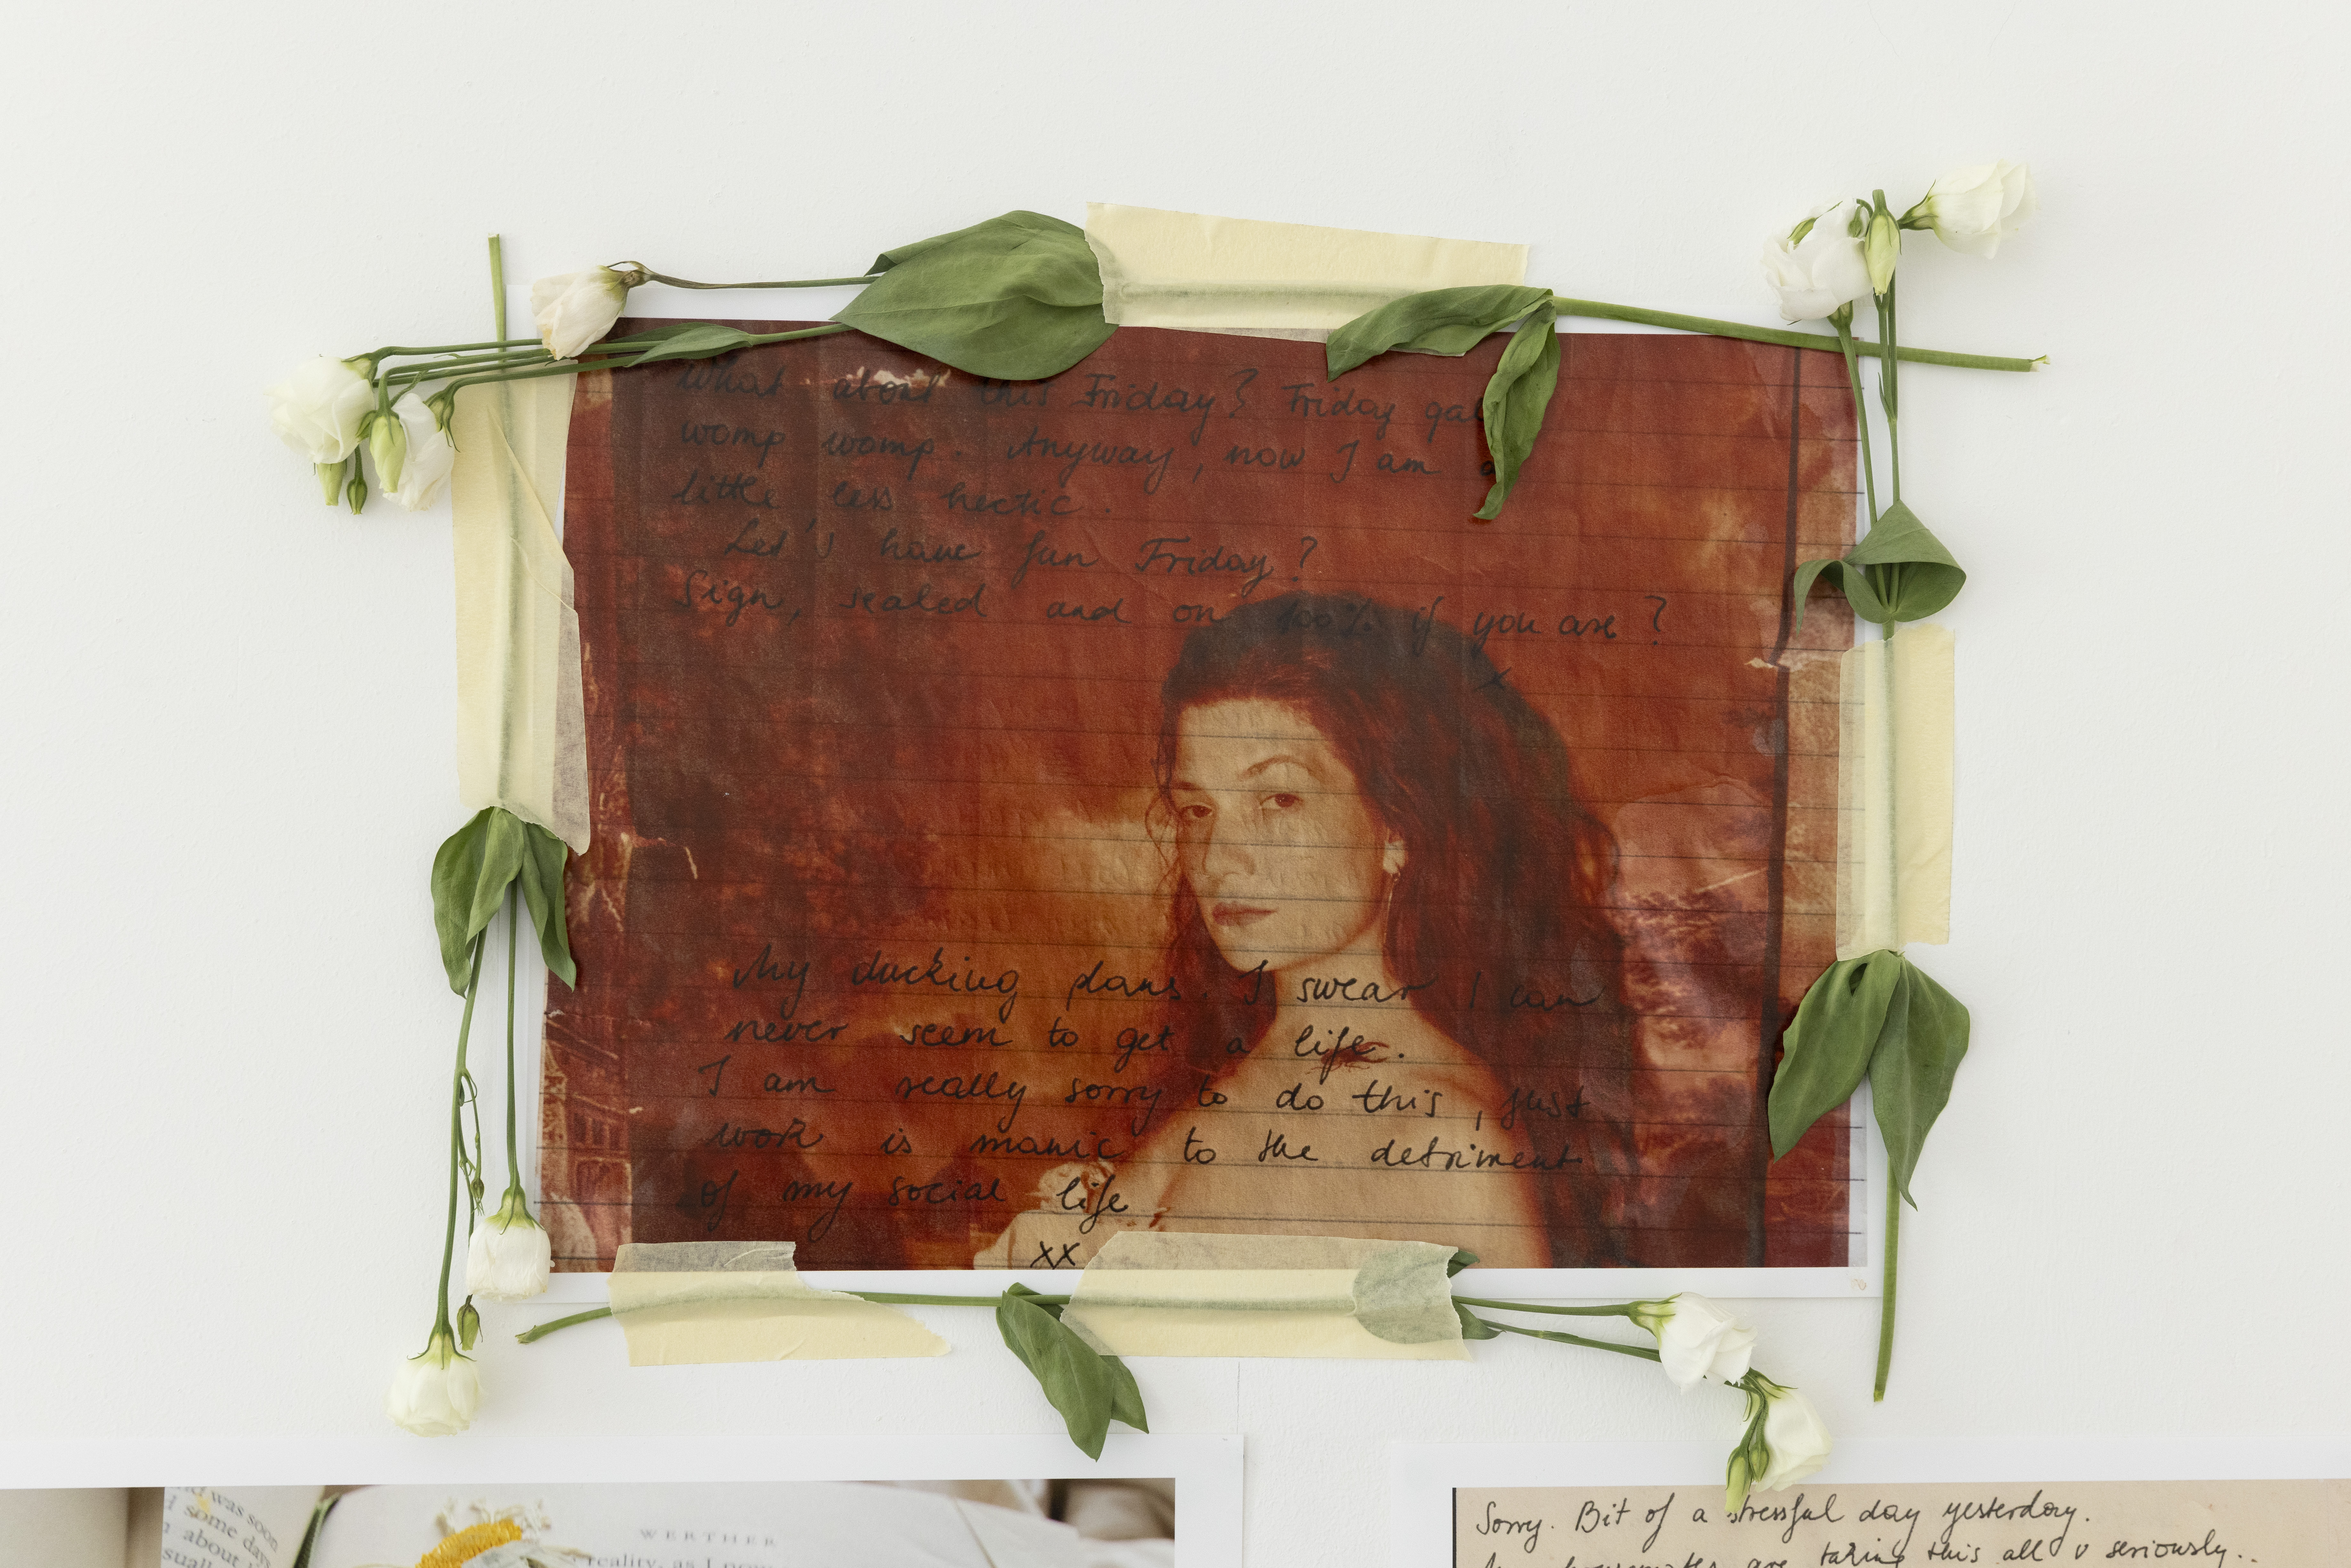 What about this Friday? Friday gal
womp womp. Anyway, now I am a
little less hectic.
Let's have fun Friday?
Sign, sealed and on 100% if you are?
x
My ducking plans. I swear I can
never seem to get a life.
I am really sorry to do this, just
work is manic to the detriment
of my social life
xx
was soon
some days
about
WERTHER
reality, as I
Sorry. Bit of a stressful day yesterday.
housemates are taking this all v seriously..